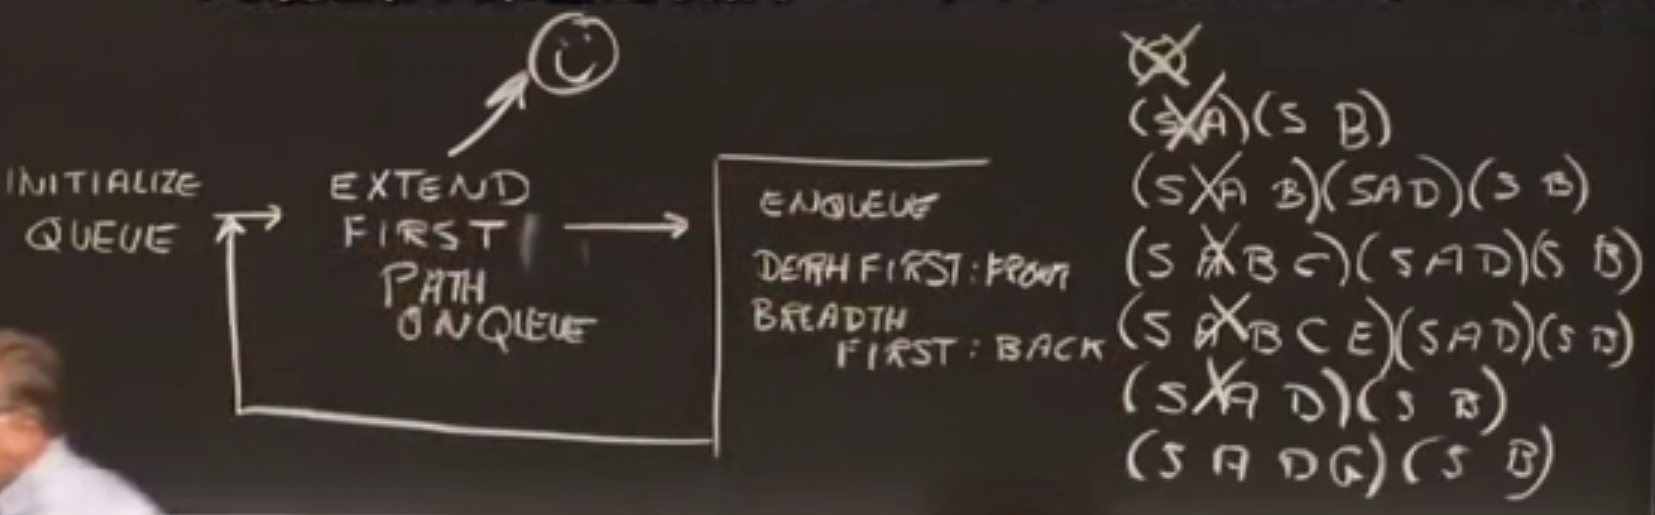 INITIALIZE
QUEUE
EXTEND
FIRST
PATH
ON QUEUE
ENQUEUE
DEPTH FIRST: FRONT
BREADTH
FIRST: BACK
(S A)(S B)
(S A B)(S A D)(S B)
(S A B C)(S A D)(S B)
(S A B C E)(S A D)(S B)
(S A D)(S B)
(S A D G)(S B)